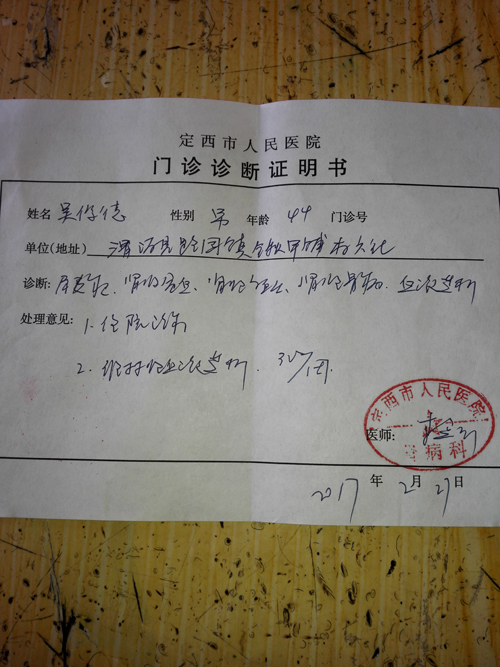 定西市人民医院
门诊诊断证明书
姓名 吴作德 性别 男 年龄 44 门诊号
单位(地址) 渭源县会川镇
诊断: 尿毒症、肾性高血压、肾性贫血、肾性骨病、血液透析
处理意见: 1. 住院治疗
2. 维持性血液透析. 3次/周.
定西市人民医院
医师:
肾病科
2017 年 2 月 27 日